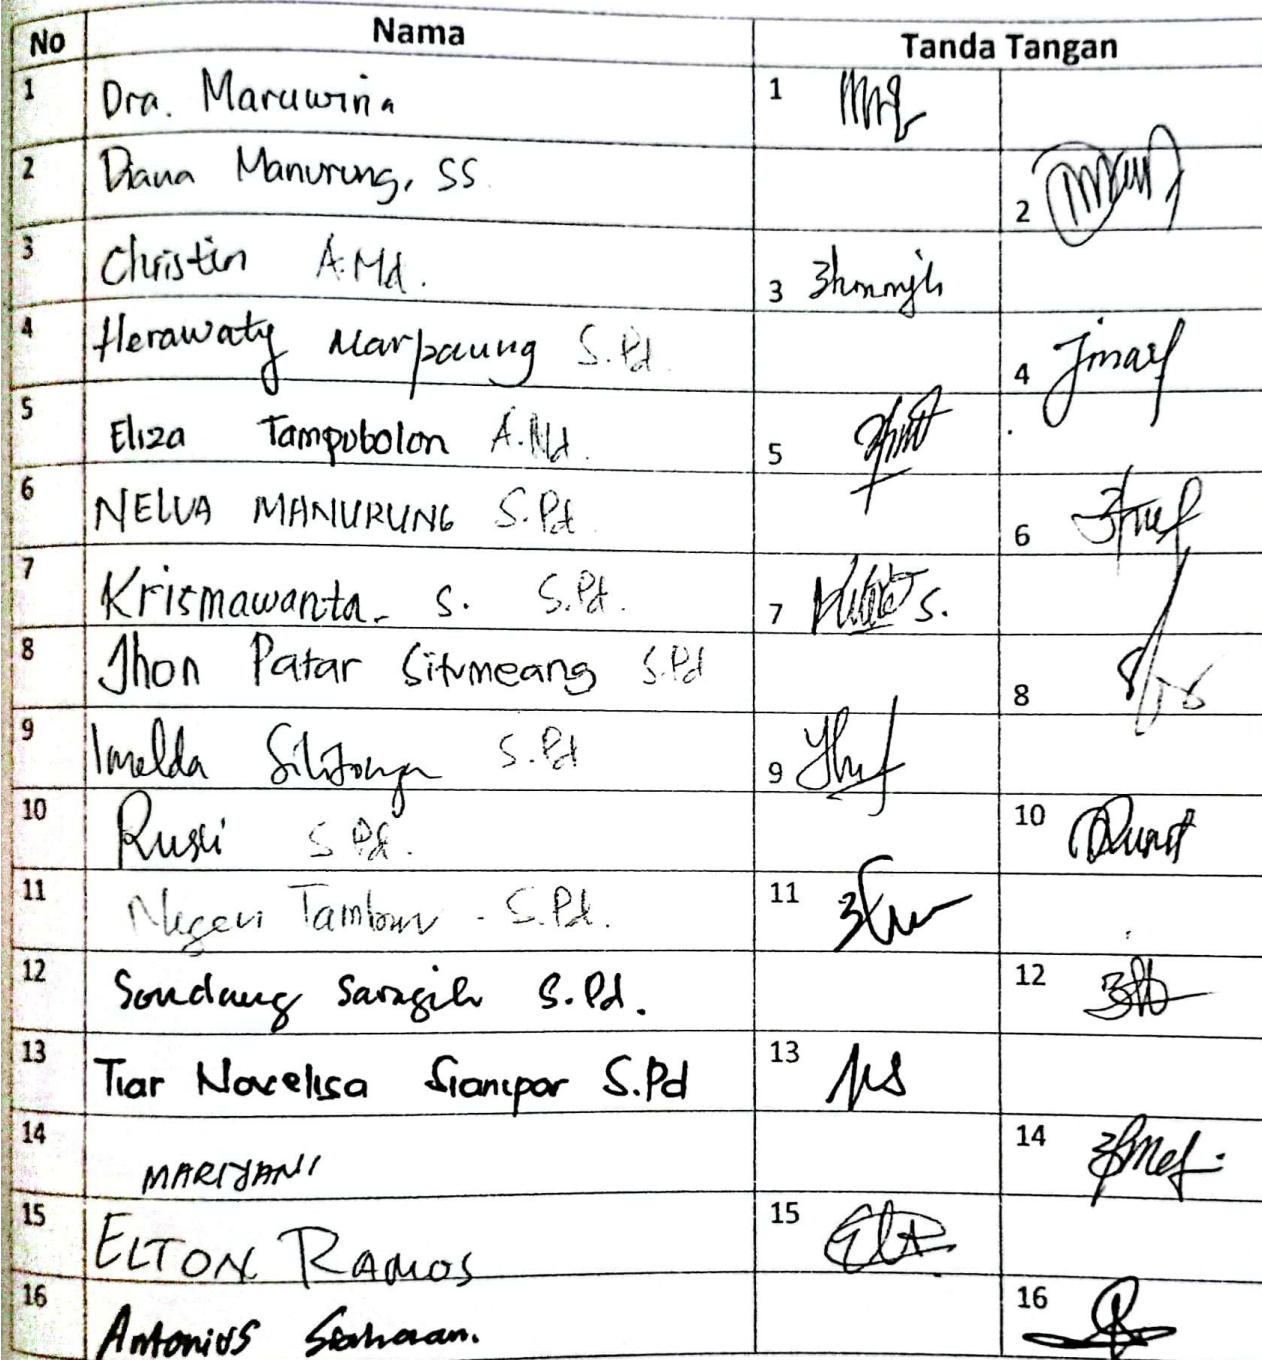 No Nama Tanda Tangan
1 Dra. Maruwina 1
2 Diana Manurung, SS 2
3 Christin A.Md. 3
4 Herawaty Marpaung S.Pd. 4
5 Eliza Tampubolon A.Md. 5
6 NELVA MANURUNG S.Pd. 6
7 Krismawanta. S. S.Pd. 7 S.
8 Jhon Patar Situmeang S.Pd 8
9 Imelda Silitonga S.Pd 9
10 Rusli S.Pd. 10
11 Negeri Tambun. S.Pd. 11
12 Sondang Saragih S.Pd. 12
13 Tiar Novelisa Sianipar S.Pd 13
14 MARIYANI 14
15 ELTON RAMOS 15
16 Antonius Siahaan. 16